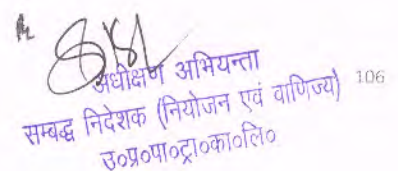 अधीक्षण अभियन्ता
सम्बद्ध निदेशक (नियोजन एवं वाणिज्य) 106
उ०प्र०पा०ट्रा०का०लि०